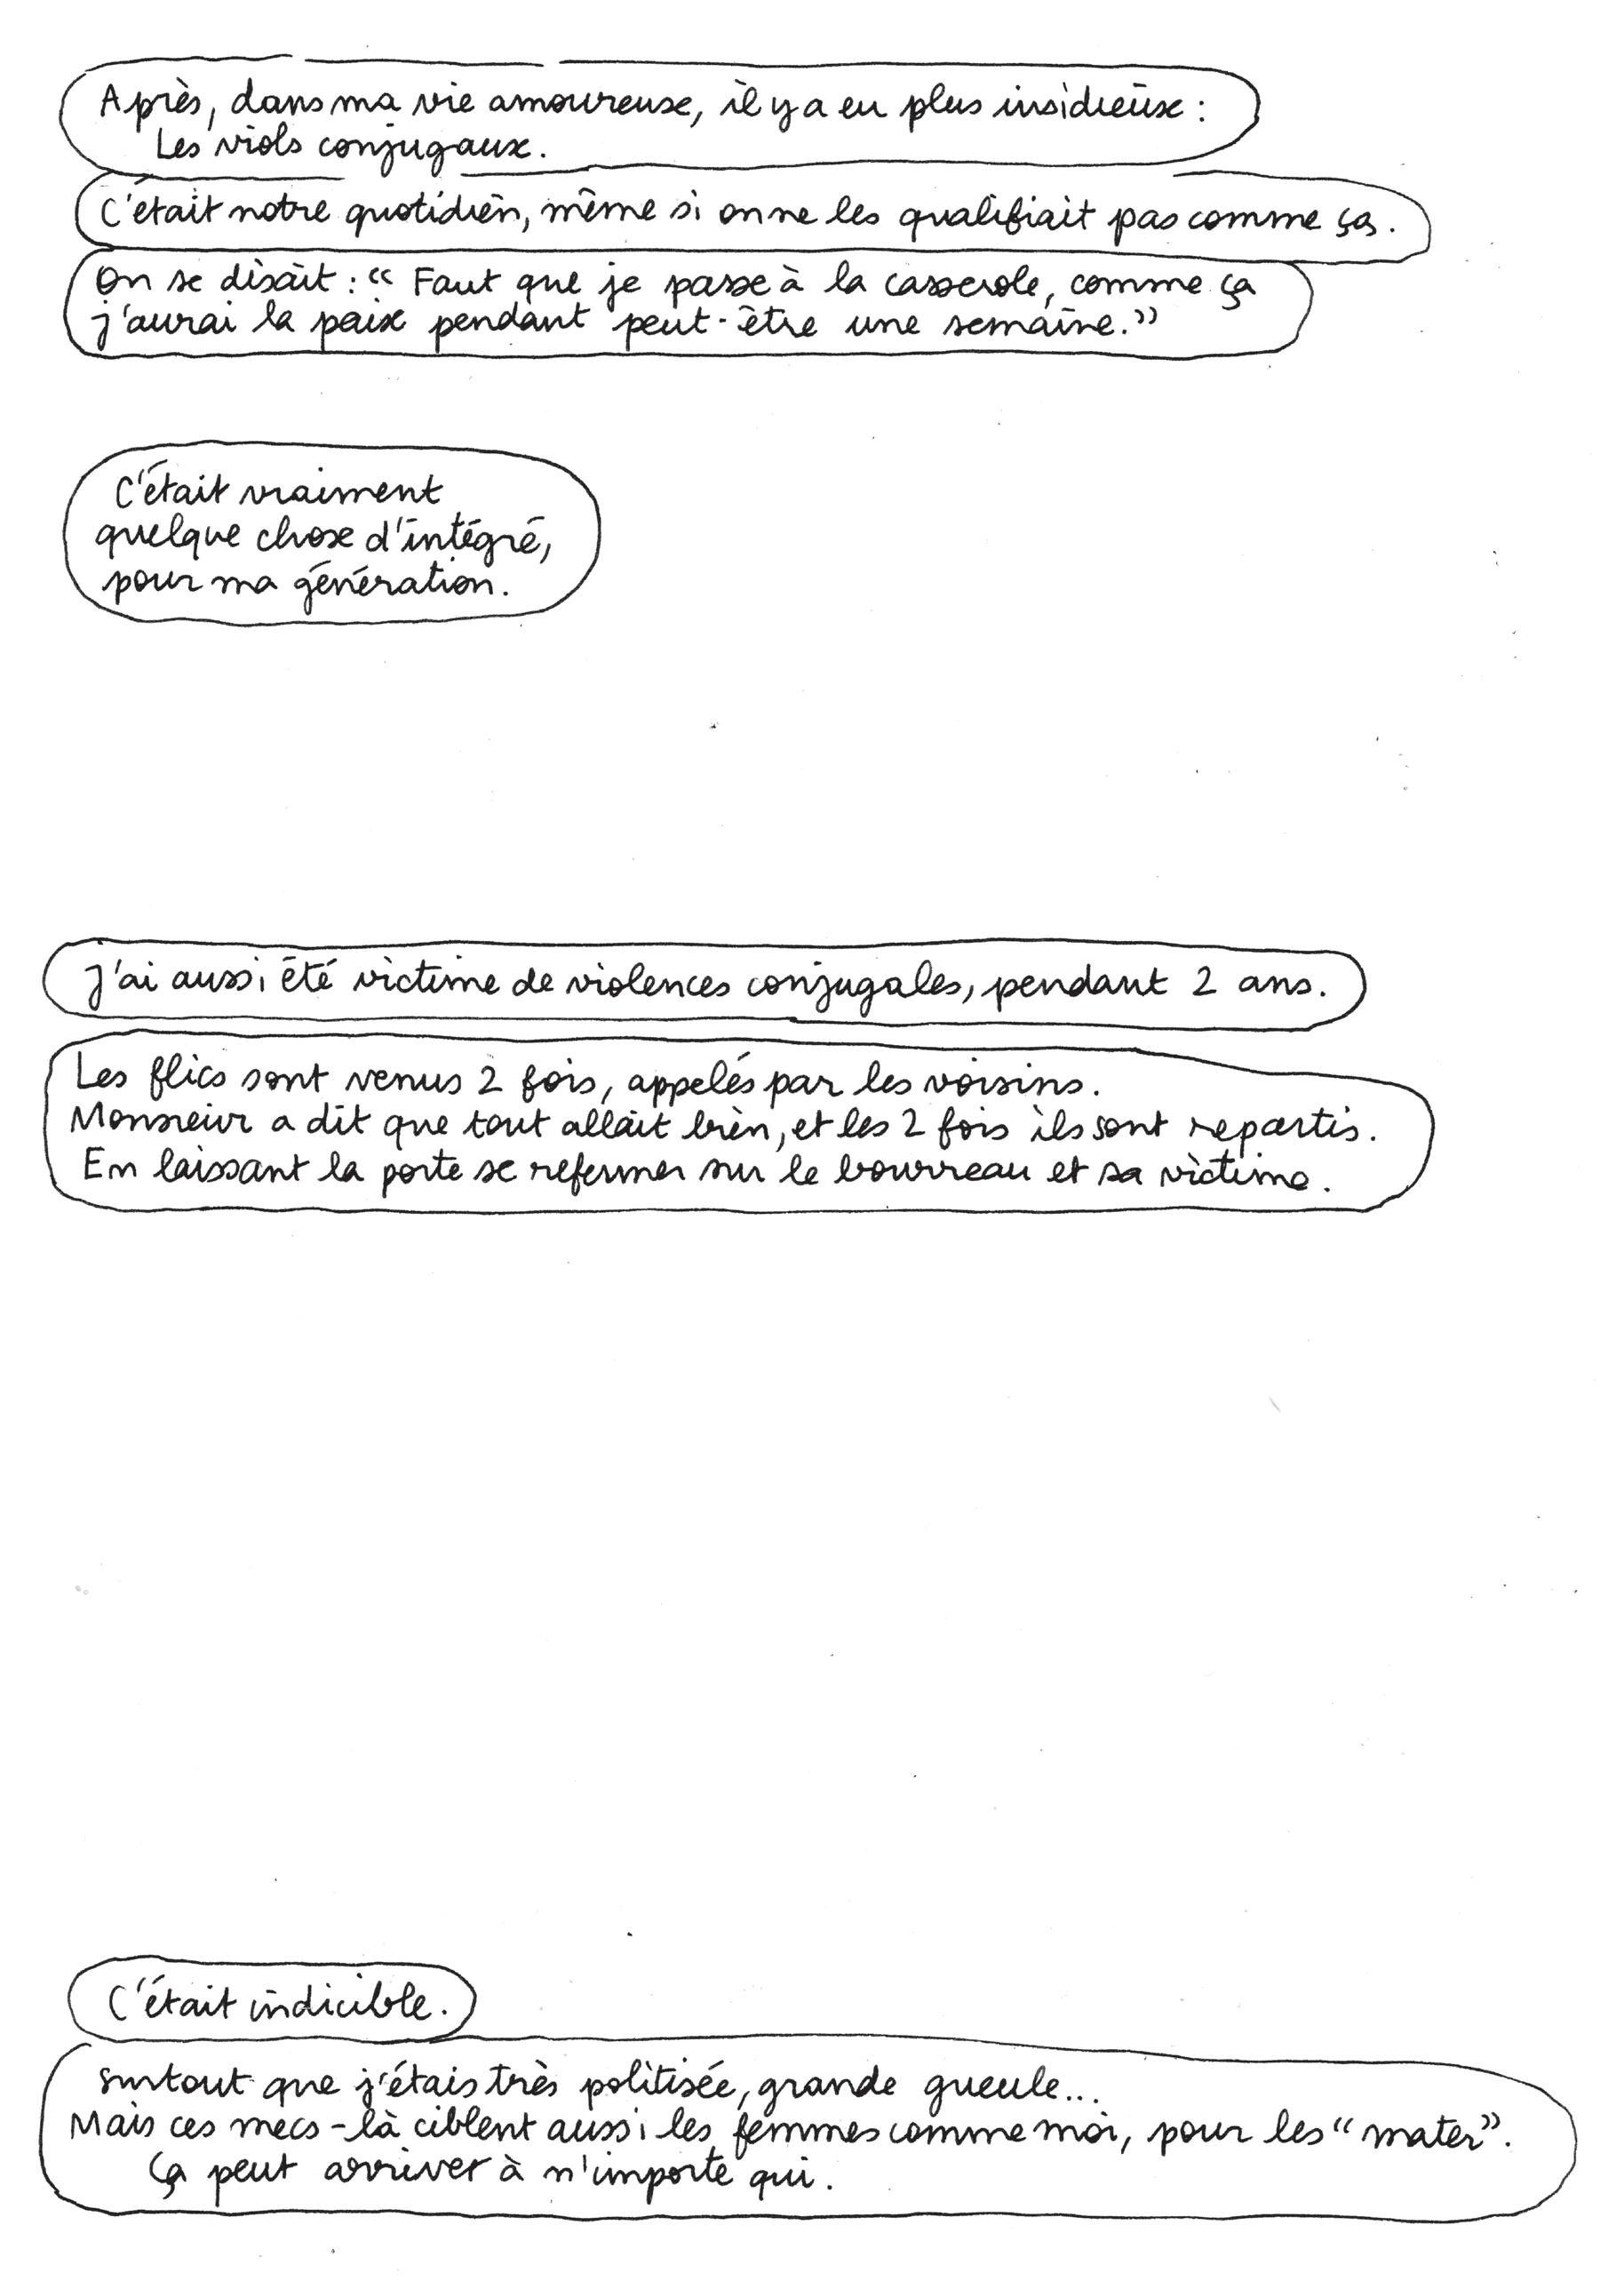 Après, dans ma vie amoureuse, il y a eu plus insidieux :
Les viols conjugaux.
C'était notre quotidien, même si on ne les qualifiait pas comme ça.
On se disait : “ Faut que je passe à la casserole, comme ça
j'aurai la paix pendant peut-être une semaine.”
C'était vraiment
quelque chose d'intégré,
pour ma génération.
J'ai aussi été victime de violences conjugales, pendant 2 ans.
Les flics sont venus 2 fois, appelés par les voisins.
Monsieur a dit que tout allait bien, et les 2 fois ils sont repartis.
En laissant la porte se refermer sur le bourreau et sa victime.
C'était indicible.
Surtout que j'étais très politisée, grande gueule...
Mais ces mecs-là ciblent aussi les femmes comme moi, pour les “mater”.
Ça peut arriver à n'importe qui.